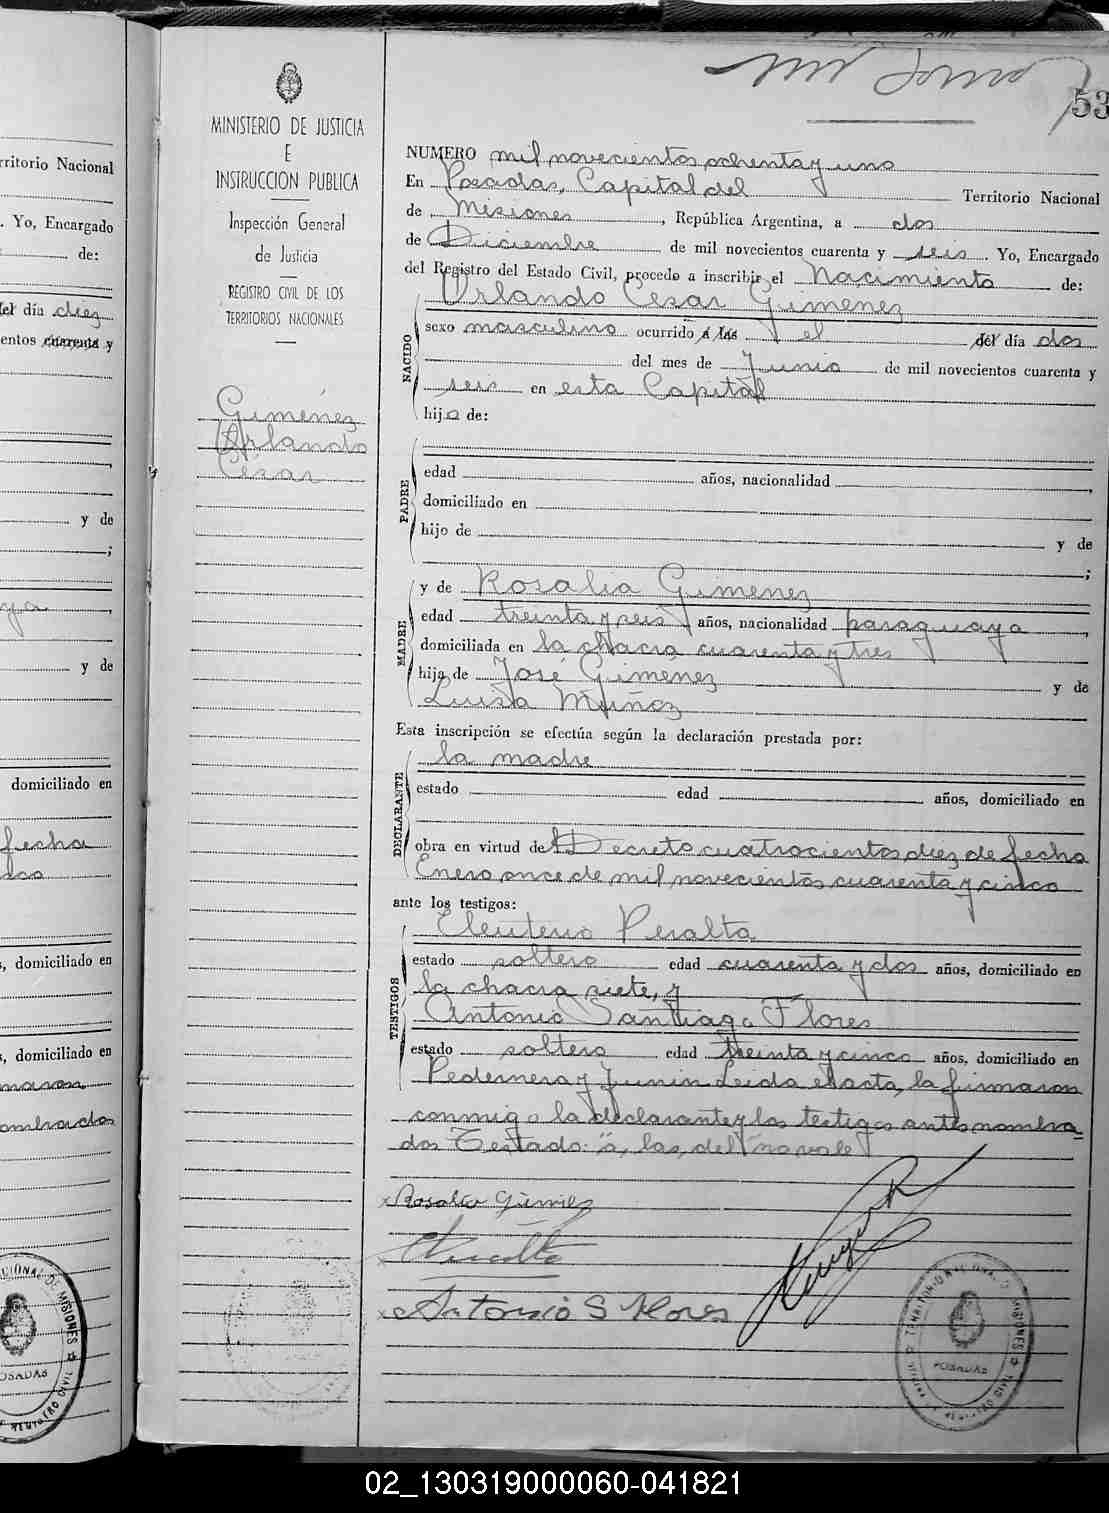 53
MINISTERIO DE JUSTICIA
E
INSTRUCCION PUBLICA
Inspección General
de Justicia
REGISTRO CIVIL DE LOS
TERRITORIOS NACIONALES
Gimenez
Orlando
César
NUMERO mil novecientos ochenta y uno
En Posadas, Capital del Territorio Nacional
de Misiones, República Argentina, a dos
de Diciembre de mil novecientos cuarenta y seis. Yo, Encargado
del Registro del Estado Civil, procedo a inscribir el Nacimiento de:
NACIDO
Orlando César Gimenez
sexo masculino ocurrido a las el del día dos
del mes de Junio de mil novecientos cuarenta y
seis en esta Capital
hijo de:
PADRE
edad años, nacionalidad
domiciliado en
hijo de y de
;
MADRE
y de Rosalia Gimenez
edad treinta y seis años, nacionalidad paraguaya,
domiciliada en la chacra cuarenta y tres
hija de José Gimenez y de
Luisa Muñoz
Esta inscripción se efectúa según la declaración prestada por:
DECLARANTE
la madre
estado edad años, domiciliado en
obra en virtud del Decreto cuatrocientos diez de fecha
Enero once de mil novecientos cuarenta y cinco
ante los testigos:
TESTIGOS
Eleuterio Peralta
estado soltero edad cuarenta y dos años, domiciliado en
la chacra siete, y
Antonio Santiago Flores
estado soltero edad treinta y cinco años, domiciliado en
Pedernera y Junin Leida el acta, la firmaron
conmigo la declarante y los testigos antes nombra-
dos Testado: "a, las, del" no vale
Rosalia Gimenez
Antonio S Flores
POSADAS
rritorio Nacional
. Yo, Encargado
de:
del día diez
entos cuarenta y
y de
;
y de
domiciliado en
fecha
, domiciliado en
, domiciliado en
maron
ombrados
MISIONES
POSADAS
02_130319000060-041821